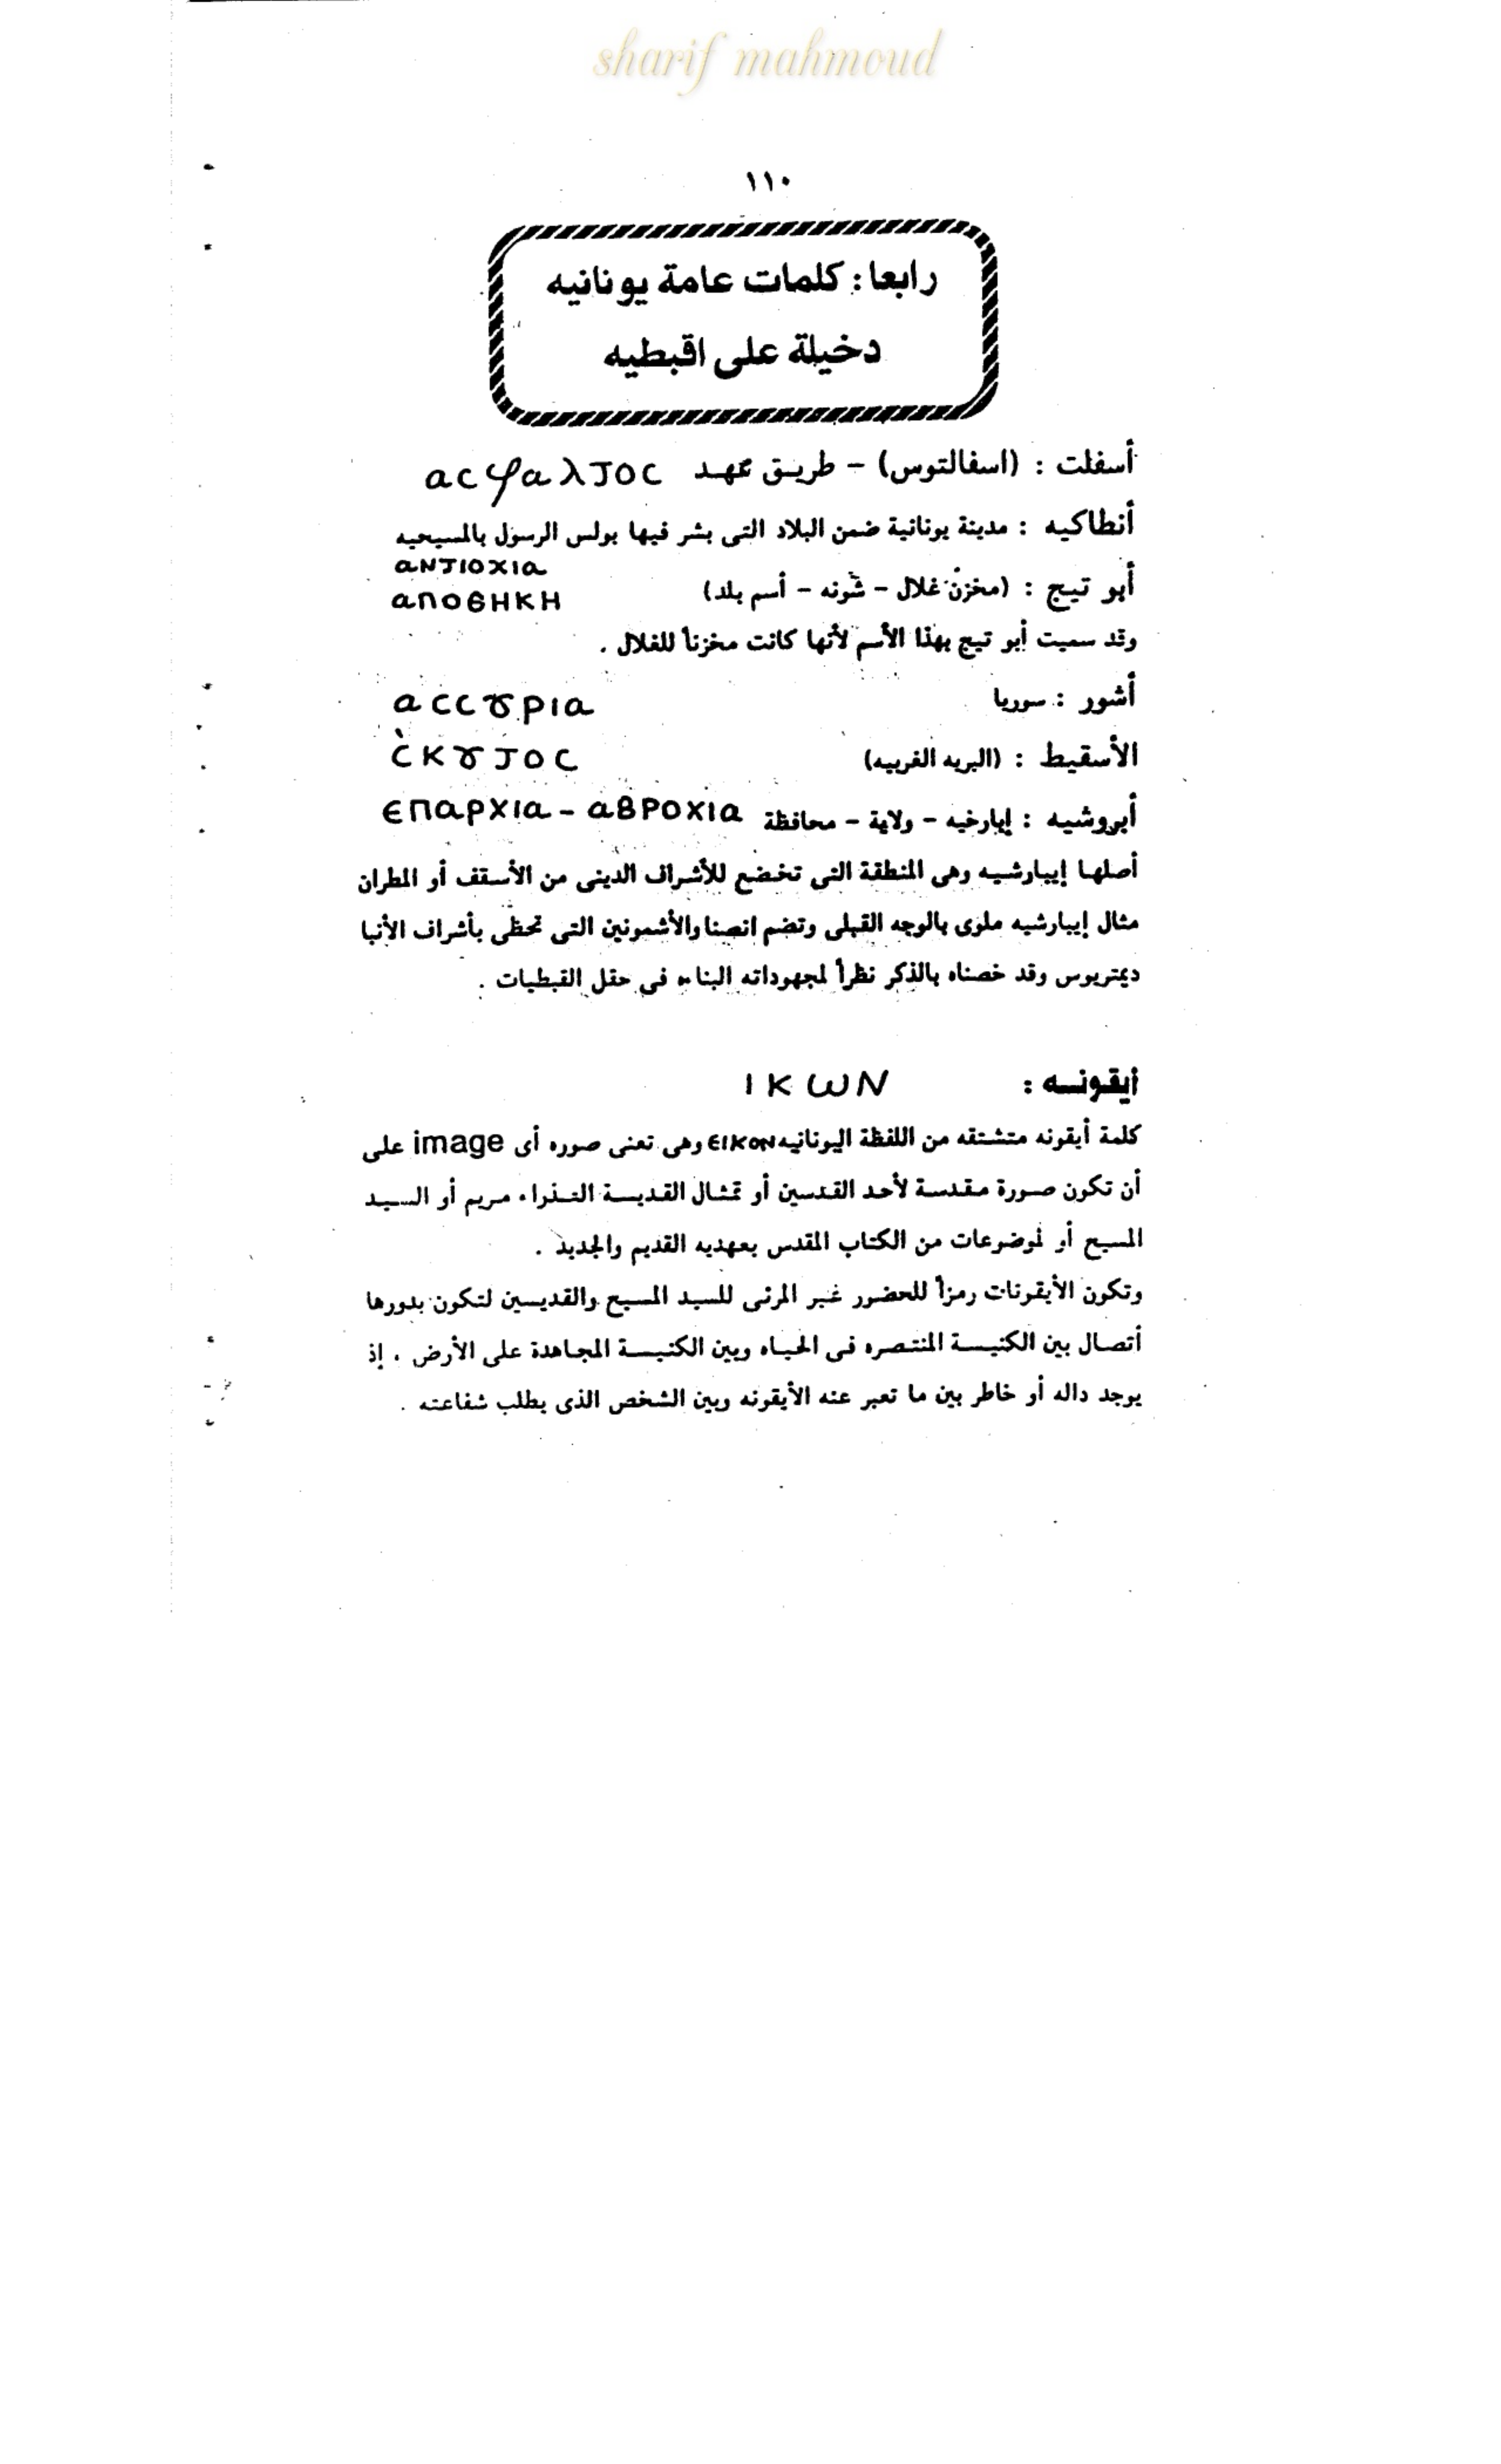 sharif mahmoud
١١٠
رابعا: كلمات عامة يونانيه
دخيلة على اقبطيه
أسفلت : (اسفالتوس) – طريق عهد ⲁⲥⲫⲁⲗⲧⲟⲥ
أنطاكيه : مدينة يونانية ضمن البلاد التى بشر فيها بولس الرسول بالمسيحيه
ⲁⲛⲧⲓⲟⲭⲓⲁ
أبو تيج : (مخزن غلال – شونه – أسم بلد) ⲁⲡⲟⲑⲏⲕⲏ
وقد سميت أبو تيج بهذا الأسم لأنها كانت مخزناً للغلال .
أشور : سوريا ⲁⲥⲥⲩⲣⲓⲁ
الأسقيط : (البريه الغربيه) ⲥ̀ⲕⲩⲧⲟⲥ
أبروشيه : إبارخيه – ولاية – محافظة ⲉⲡⲁⲣⲭⲓⲁ – ⲁⲃⲣⲟⲭⲓⲁ
أصلها إيبارشيه وهى المنطقة التى تخضع للأشراف الدينى من الأسقف أو المطران
مثال إيبارشيه ملوى بالوجه القبلى وتضم انصنا والأشمونين التى تحظى بأشراف الأنبا
ديمتريوس وقد خصناه بالذكر نظراً لمجهوداته البناء فى حقل القبطيات .
أيقونه : ⲓⲕⲱⲛ
كلمة أيقونه متشتقه من اللفظة اليونانيه ⲉⲓⲕⲟⲛ وهى تعنى صوره أى image على
أن تكون صورة مقدسة لأحد القدسين أو تمثال القديسة العذراء مريم أو السيد
المسيح أو لموضوعات من الكتاب المقدس بعهديه القديم والجديد .
وتكون الأيقونات رمزاً للحضور غير المرئى للسيد المسيح والقديسين لتكون بدورها
أتصال بين الكنيسة المنتصره فى الحياه وبين الكنيسة المجاهدة على الأرض . إذ
يوجد داله أو خاطر بين ما تعبر عنه الأيقونه وبين الشخص الذى يطلب شفاعته .